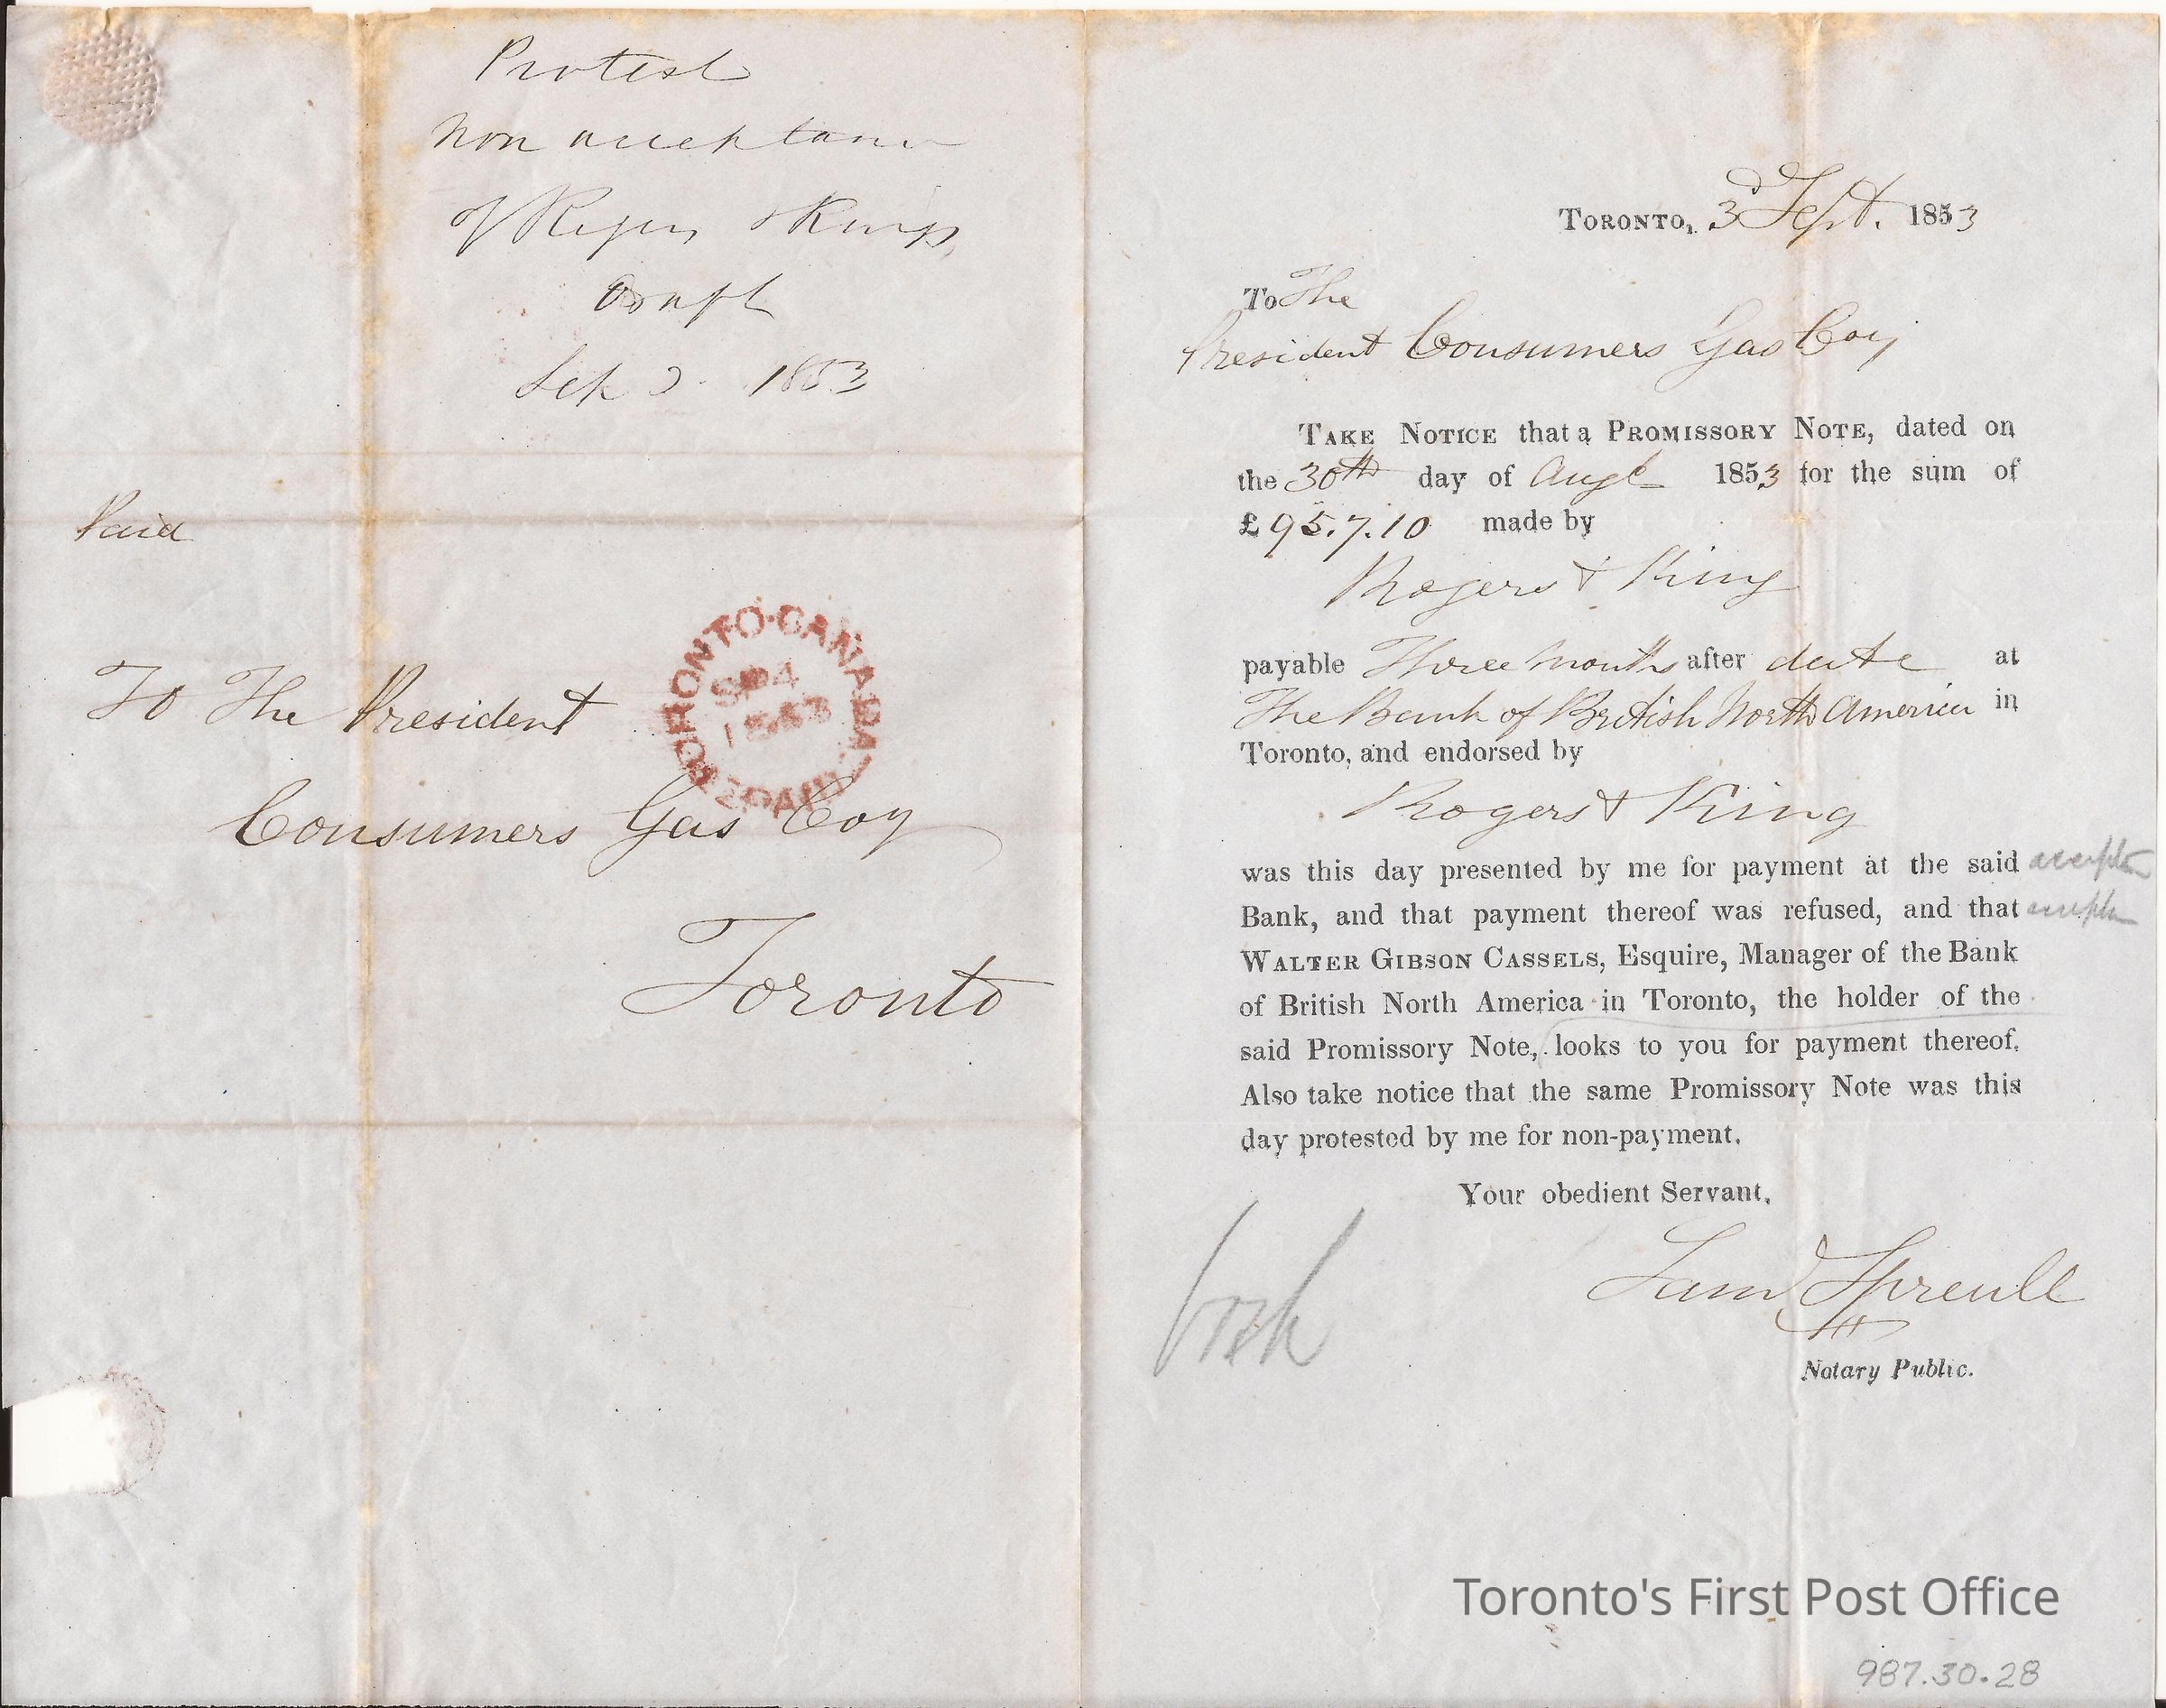 Protest
Non acceptance
of Rogers & Kings
Draft
Sep 3. 1853
Paid
To The President
Consumers Gas Coy
Toronto
TORONTO·CANADA
SP 4
1853
PAID
TORONTO, 3 Sept. 1853
To The
President Consumers Gas Coy
TAKE NOTICE that a PROMISSORY NOTE, dated on
the 30th day of Augt 1853 for the sum of
£ 95.7.10 made by
Rogers & King
payable Three Months after date at
The Bank of British North America in
Toronto, and endorsed by
Rogers & King
was this day presented by me for payment at the said
Bank, and that payment thereof was refused, and that
WALTER GIBSON CASSELS, Esquire, Manager of the Bank
of British North America in Toronto, the holder of the
said Promissory Note, looks to you for payment thereof.
Also take notice that the same Promissory Note was this
day protested by me for non-payment.
Your obedient Servant,
Saml Spreull
Notary Public.
Toronto's First Post Office
987.30.28